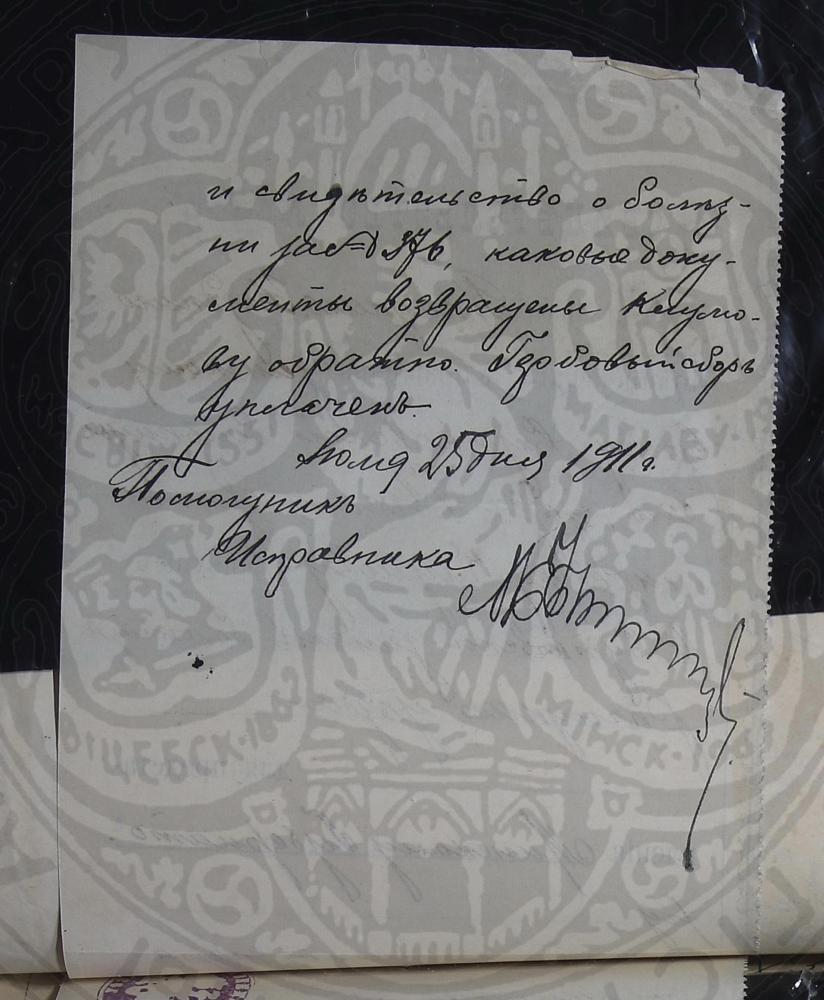 и свидѣтельство о болѣз-
ни за № 376, каковые доку-
менты возвращены Клумо-
ву обратно. Гербовый сборъ
уплаченъ.
Іюля 25 дня 1911 г.
Помощникъ
Исправника